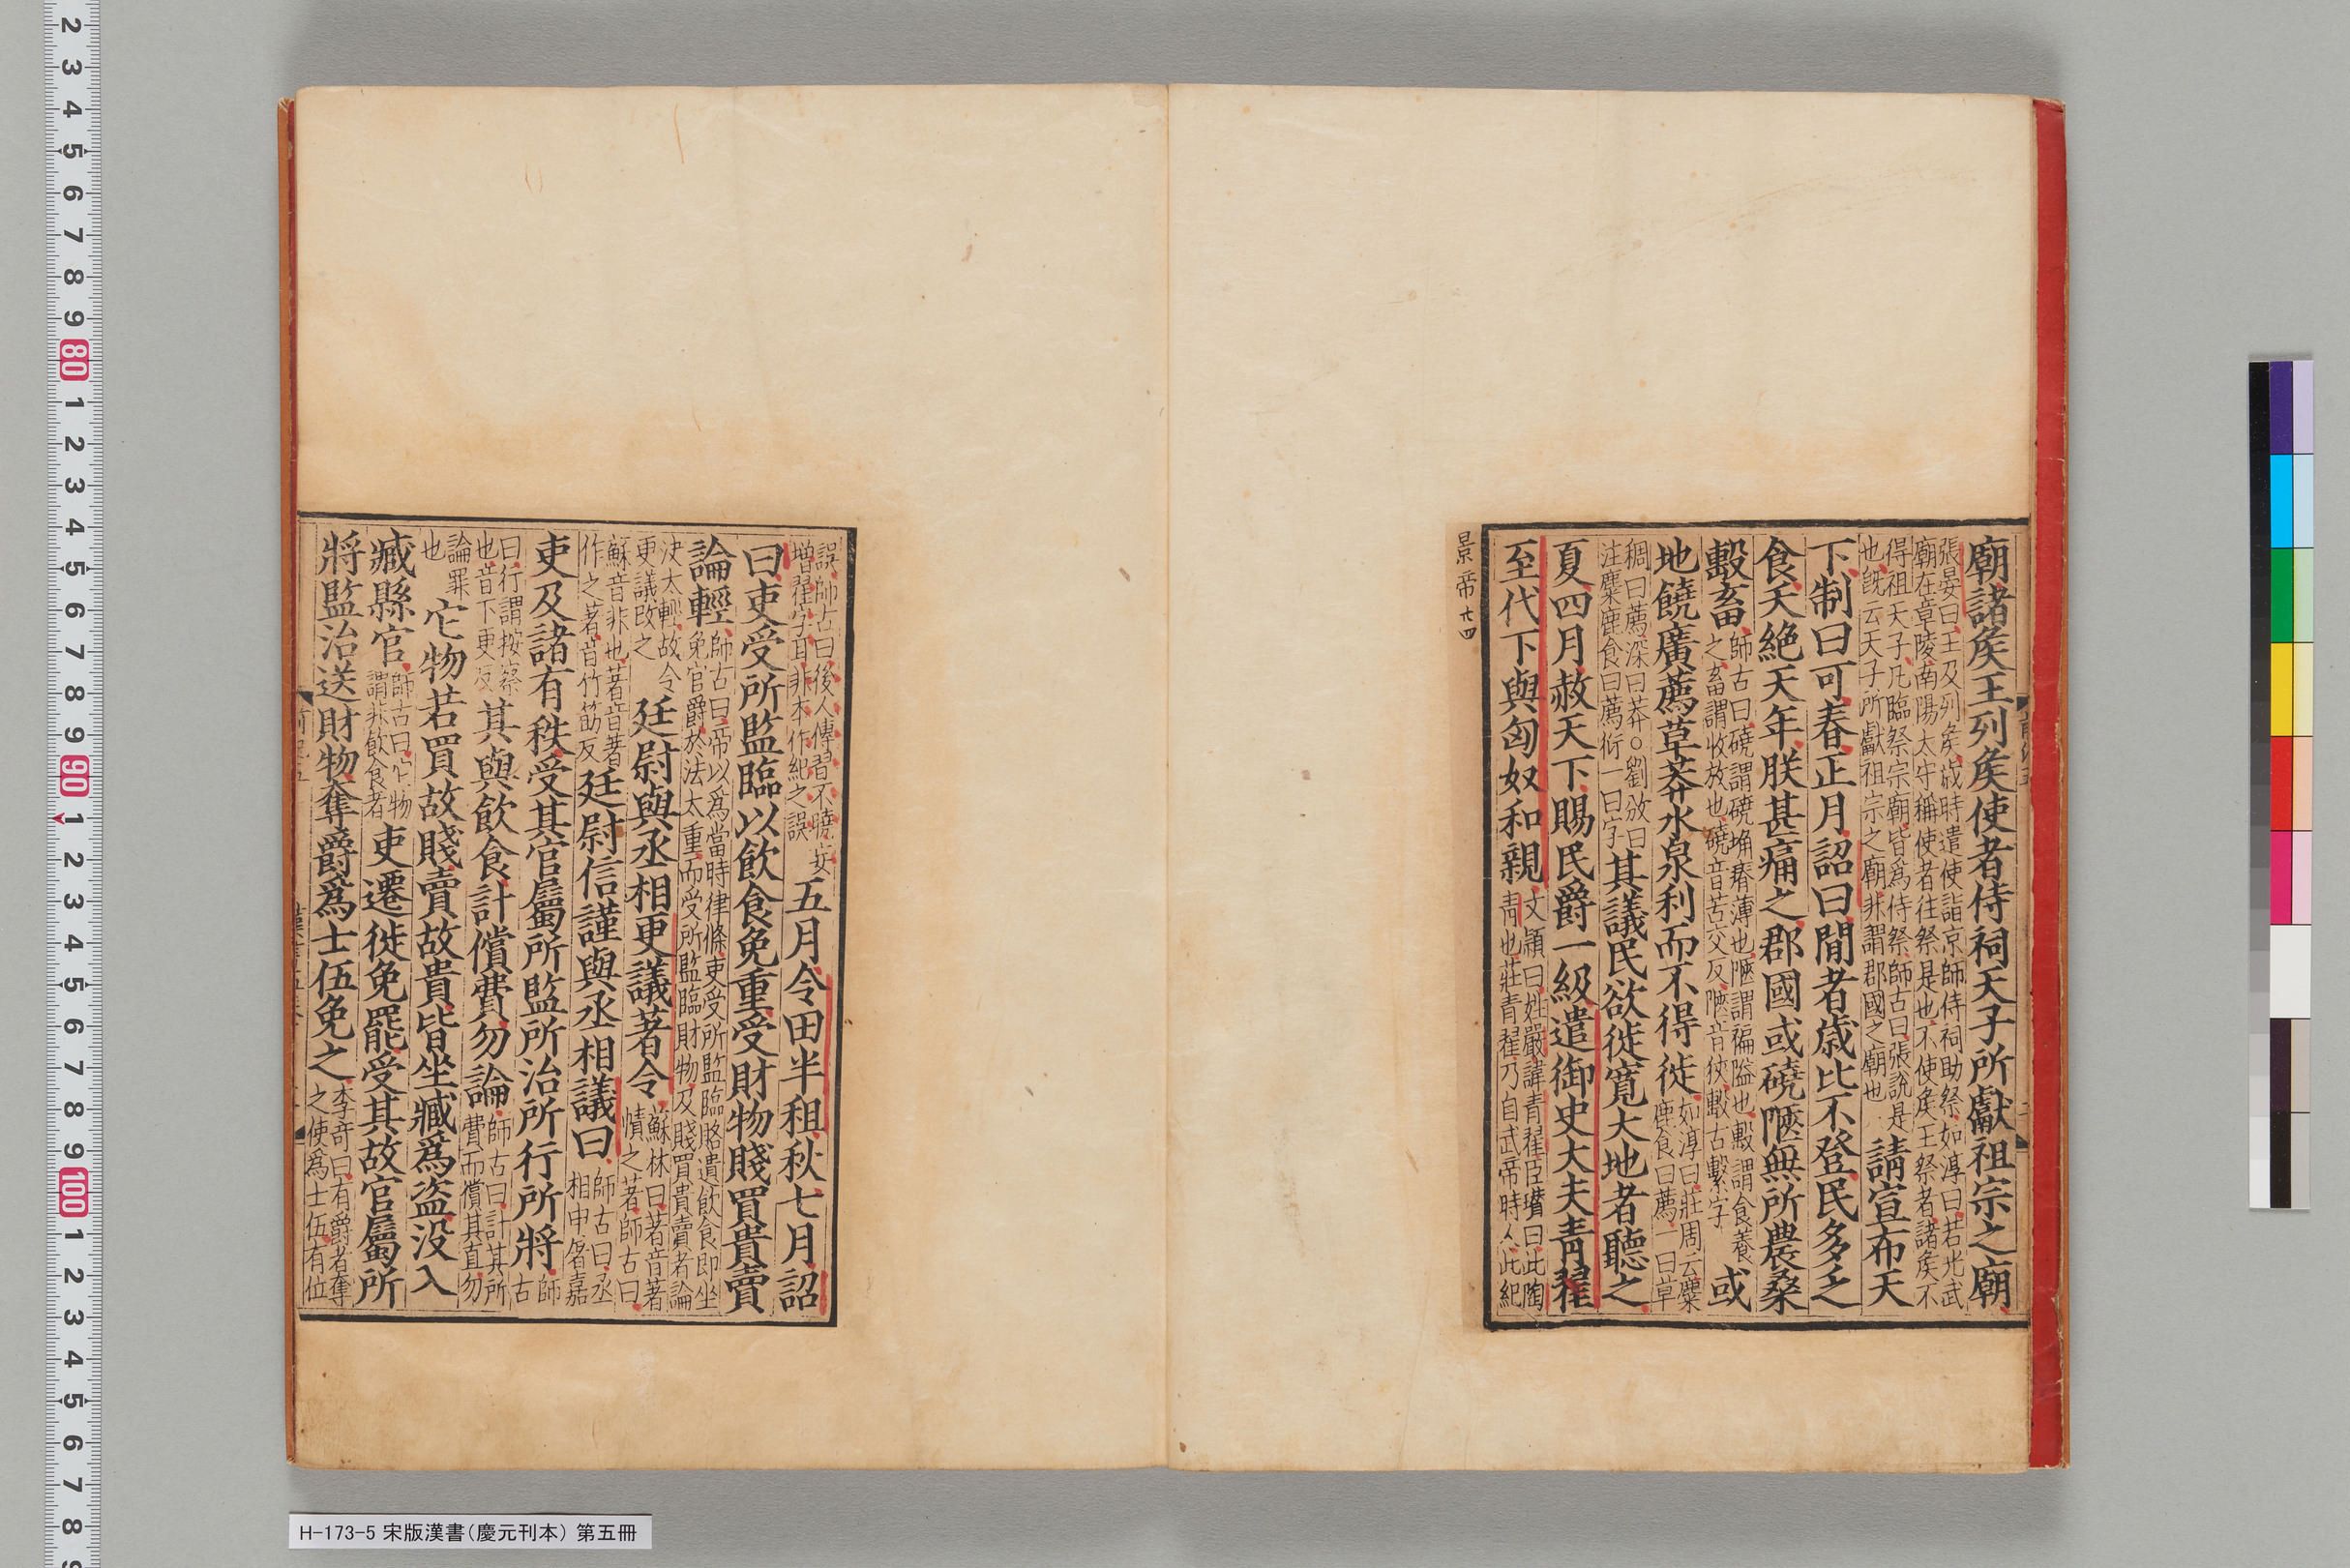 廟諸侯王列侯使者侍祠天子所獻祖宗之廟
張晏曰王及列侯歲時遣使詣京師侍祠助祭如淳曰若光武
廟在章陵南陽太守稱使者往祭是也不使侯王祭者諸侯不
得祖天子凡臨祭宗廟皆爲侍祭師古曰張說是
也旣云天子所獻祖宗之廟非謂郡國之廟也
請宣布天
下制曰可春正月詔曰閒者歲比不登民多乏
食夭絶天年朕甚痛之郡國或磽陿無所農桑
毄畜
師古曰磽謂磽埆瘠薄也陿謂褊隘也毄謂食養
之畜謂收放也磽音苦交反陿音狹毄古繫字
或
地饒廣薦草莽水泉利而不得徙
如淳曰莊周云麋
鹿食曰薦一曰草
稠曰薦深曰莽○劉攽曰
注麋鹿食曰薦衍一曰字
其議民欲徙寬大地者聽之
夏四月赦天下賜民爵一級遣御史大夫青翟
至代下與匈奴和親
文穎曰姓嚴諱青翟臣瓚曰此陶
青也莊青翟乃自武帝時人此紀
景帝 十四
誤師古曰後人傳習不曉妄
增翟字耳非本作紀之誤
五月令田半租秋七月詔
曰吏受所監臨以飲食免重受財物賤買貴賣
論輕
師古曰帝以爲當時律條吏受所監臨賂遺飲食即坐
免官爵於法太重而受所監臨財物及賤買貴賣者論
決太輕故令
更議改之
廷尉與丞相更議著令
蘇林曰著音著
幘之著師古曰
蘇音非也著音著
作之著音竹筯反
廷尉信謹與丞相議曰
師古曰丞
相申屠嘉
吏及諸有秩受其官屬所監所治所行所將
師古
曰行謂按察
也音下更反
其與飲食計償費勿論
師古曰計其所
費而償其直勿
論罪
也
它物若買故賤賣故貴皆坐臧爲盜沒入
臧縣官
師古曰它物
謂非飲食者
吏遷徙免罷受其故官屬所
將監治送財物奪爵爲士伍免之
李奇曰有爵者奪
之使爲士伍有位
H-173-5 宋版漢書(慶元刊本) 第五冊
2 3 4 5 6 7 8 9 80 1 2 3 4 5 6 7 8 9 90 1 2 3 4 5 6 7 8 9 100 1 2 3 4 5 6 7 8